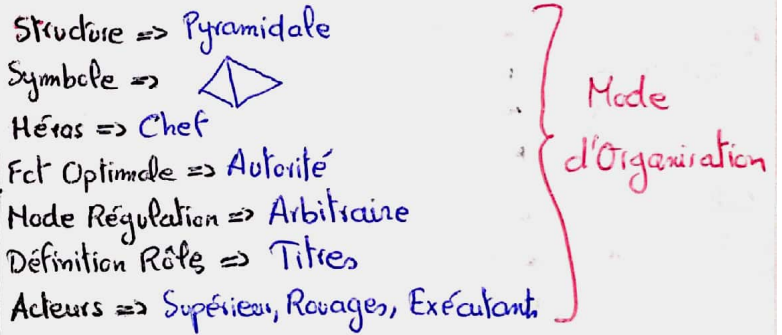 Structure => Pyramidale
Symbole =>
Héros => Chef
Fct Optimale => Autorité
Mode Régulation => Arbitraire
Définition Rôle => Titres
Acteurs => Supérieur, Rouages, Exécutant
Mode
d'Organisation